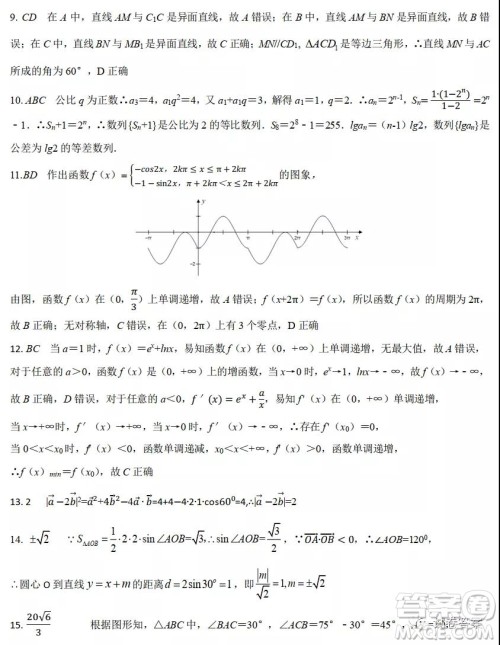 9. CD 在 A 中，直线 AM 与 C₁C 是异面直线，故 A 错误；在 B 中，直线 AM 与 BN 是异面直线，故 B 错
误；在 C 中，直线 BN 与 MB₁ 是异面直线，故 C 正确；MN//CD₁, △ACD₁ 是等边三角形，∴直线 MN 与 AC
所成的角为 60°，D 正确
10. ABC 公比 q 为正数∴a₃=4，a₁q²=4，又 a₁+a₁q=3，解得 a₁=1，q=2．∴aₙ=2ⁿ⁻¹，Sₙ=1·(1−2ⁿ)/1−2=2ⁿ
﹣1．∴Sₙ+1=2ⁿ，∴数列{Sₙ+1}是公比为 2 的等比数列．S₈=2⁸﹣1=255．lgaₙ=（n-1）lg2，数列{lgaₙ}是
公差为 lg2 的等差数列．
11.BD 作出函数 f（x）={−cos2x，2kπ ≤ x ≤ π + 2kπ
−1 − sin2x，π + 2kπ＜x ≤ 2π + 2kπ 的图象，
y
-π π 2π 3π x
-2
由图，函数 f（x）在（0，π/3）上单调递增，故 A 错误；f（x+2π）＝f（x），所以函数 f（x）的周期为 2π，
故 B 正确；无对称轴，C 错误，在（0，2π）上有 3 个零点，D 正确
12. BC 当 a＝1 时，f（x）＝eˣ+lnx，易知函数 f（x）在（0，+∞）上单调递增，无最大值，故 A 错误，
对于任意的 a＞0，函数 f（x）是（0，+∞）上的增函数，当 x→0 时，eˣ→1，lnx→﹣∞，故 f（x）→﹣∞，
故 B 正确，D 错误，对于任意的 a＜0，f ′(x)=eˣ+a/x，易知 f'（x）在（0，+∞）单调递增，
当 x→+∞时，f′（x）→+∞，当 x→0 时，f′（x）→﹣∞，∴存在 f′（x₀）＝0，
当 0＜x＜x₀ 时，f′（x）＜0，函数单调递减，x₀＜x＜+∞，f′（x）＞0，函数单调递增，
∴f（x）min＝f（x₀），故 C 正确
13. 2 |a⃗−2b⃗|²=a⃗²+4b⃗²−4a⃗·b⃗=4+4−4·2·1·cos60⁰=4,∴|a⃗−2b⃗|=2
14. ±√2 ∵S△AOB=1/2·2·2·sin∠AOB=√3,∴sin∠AOB=√3/2，∵OA·OB<0，∴∠AOB=120⁰，
∴圆心 O 到直线 y=x+m 的距离 d=2sin30⁰=1，即|m|/√2=1,m=±√2
15. 20√6/3 根据图形知，△ABC 中，∠BAC=30°，∠ACB=75°﹣30°=45°，